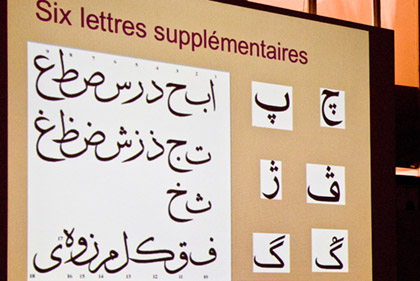 Six lettres supplémentaires
ا ب ح د ر س ص ط ع
ت ج ذ ز ش ض ظ غ
ث خ
ف ق ك ل م ن و ه ى
چ پ
ڤ ژ
گُ گ